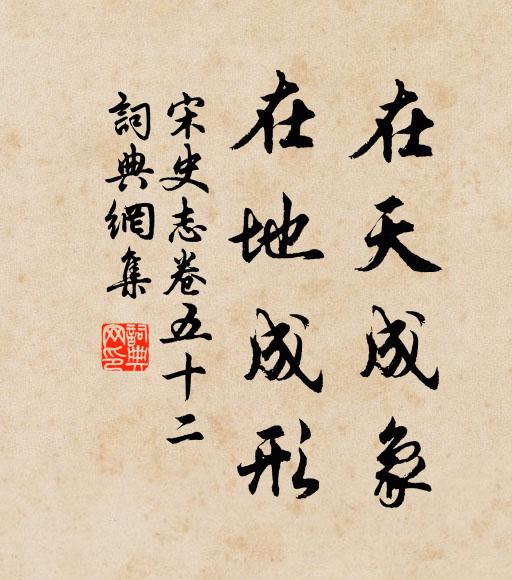 在天成象
在地成形
宋史志卷五十二
詞典網集
詞典
网印